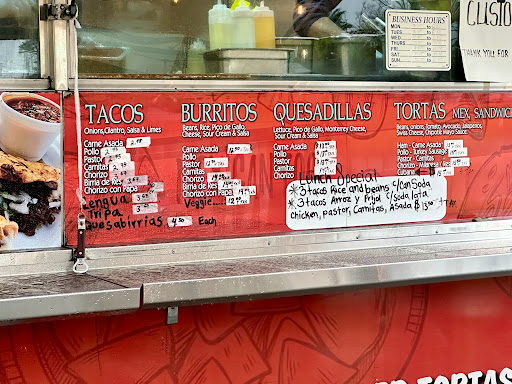 BUSINESS HOURS
MON to
TUES to
WED to
THUR to
FRI to
SAT to
SUN to
CUSTO
THANK YOU FOR
TACOS
Onions, Cilantro, Salsa & Limes
Carne Asada
Pollo
Pastor
Carnitas
Chorizo
Birria de Res
Chorizo con Papa
Lengua
Tripa
Quesabirrias 4.50 Each
BURRITOS
Beans, Rice, Pico de Gallo,
Cheese, Sour Cream & Salsa
Carne Asada
Pollo
Pastor
Carnitas
Chorizo
Birria de Res
Chorizo con Papa
Veggie
QUESADILLAS
Lettuce, Pico de Gallo, Monterrey Cheese,
Sour Cream & Salsa
Carne Asada
Pollo
Pastor
Carnitas
Chorizo
TORTAS MEX. SANDWICH
Beans, onions, Tomato, Avocado, Jalapeños,
Swiss Cheese, Chipotle Mayo Sauce.
Ham - Carne Asada
Pollo - Turkey Sausage
Pastor - Carnitas
Chorizo - Milanesa
Cubana
Lunch Special
* 3 taco Rice and beans c/can Soda
* 3 tacos Arroz y Frijol c/soda lata
chicken, pastor, Carnitas, Asada $13.50
TORTAS